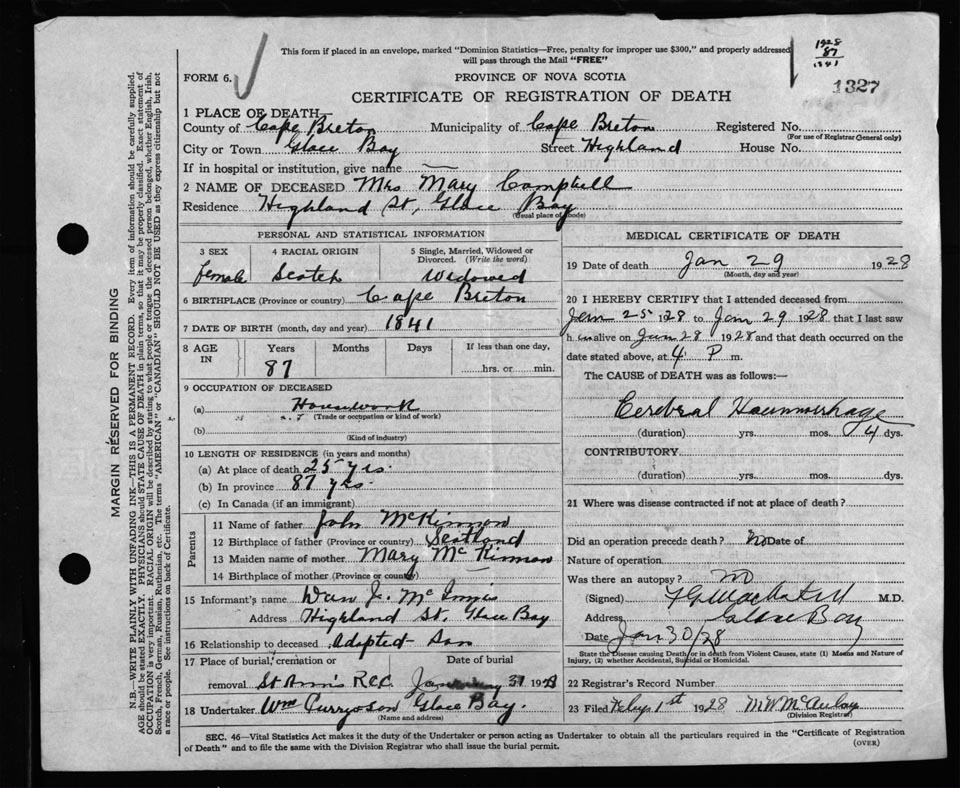 This form if placed in an envelope, marked "Dominion Statistics—Free, penalty for improper use $300," and properly addressed
will pass through the Mail "FREE"
1928
87
1841
1327
FORM 6.
PROVINCE OF NOVA SCOTIA
CERTIFICATE OF REGISTRATION OF DEATH
1 PLACE OF DEATH
County of Cape Breton Municipality of Cape Breton Registered No.
(For use of Registrar General only)
City or Town Glace Bay Street Highland House No.
If in hospital or institution, give name —
2 NAME OF DECEASED Mrs Mary Campbell
Residence Highland St, Glace Bay
(Usual place of abode)
PERSONAL AND STATISTICAL INFORMATION
3 SEX
female
4 RACIAL ORIGIN
Scotch
5 Single, Married, Widowed or
Divorced. (Write the word)
Widowed
6 BIRTHPLACE (Province or country) Cape Breton
7 DATE OF BIRTH (month, day and year) 1841
8 AGE IN
Years
87
Months
Days
If less than one day,
hrs. or min.
9 OCCUPATION OF DECEASED
(a) Housework
(Trade or occupation or kind of work)
(b)
(Kind of industry)
10 LENGTH OF RESIDENCE (in years and months)
(a) At place of death 25 yrs.
(b) In province 87 yrs.
(c) In Canada (if an immigrant)
Parents
11 Name of father John McKinnon
12 Birthplace of father (Province or country) Scotland
13 Maiden name of mother Mary McKinnon
14 Birthplace of mother (Province or country) —
15 Informant's name Dan J. McInnis
Address Highland St. Glace Bay
16 Relationship to deceased Adopted Son
17 Place of burial, cremation or
removal St Ann's R.C.C.
Date of burial
January 31 1928
18 Undertaker Wm Curry & Son Glace Bay.
(Name and address)
MEDICAL CERTIFICATE OF DEATH
19 Date of death Jan 29 1928
(Month, day and year)
20 I HEREBY CERTIFY that I attended deceased from
Jan 25 1928 to Jan 29 1928 that I last saw
h alive on Jan 28 1928 and that death occurred on the
date stated above, at 4 P m.
The CAUSE of DEATH was as follows:—
Cerebral Haemmorhage
(duration) yrs. mos. 4 dys.
CONTRIBUTORY
(duration) yrs. mos. dys.
21 Where was disease contracted if not at place of death?
Did an operation precede death? No Date of
Nature of operation
Was there an autopsy? no
(Signed) M.D.
Address Glace Bay
Date Jan 30/28
State the Disease causing Death, or in death from Violent Causes, state (1) Means and Nature of
Injury, (2) whether Accidental, Suicidal or Homicidal.
22 Registrar's Record Number
23 Filed Feby 1st 1928 M W McAulay
(Division Registrar)
SEC. 46—Vital Statistics Act makes it the duty of the Undertaker or person acting as Undertaker to obtain all the particulars required in the "Certificate of Registration
of Death" and to file the same with the Division Registrar who shall issue the burial permit.
(OVER)
MARGIN RESERVED FOR BINDING
N.B.—WRITE PLAINLY WITH UNFADING INK—THIS IS A PERMANENT RECORD. Every item of information should be carefully supplied.
AGE should be stated EXACTLY. PHYSICIANS should STATE CAUSE OF DEATH in plain terms, so that it may be properly classified. Exact statement of
OCCUPATION is very important. RACIAL ORIGIN will be described by stating to what people or tongue the deceased person belonged, whether English, Irish,
Scotch, French, German, Russian, Ruthenian, etc. The terms "AMERICAN" or "CANADIAN" SHOULD NOT BE USED as they express citizenship but not
a race or people. See instructions on back of Certificate.